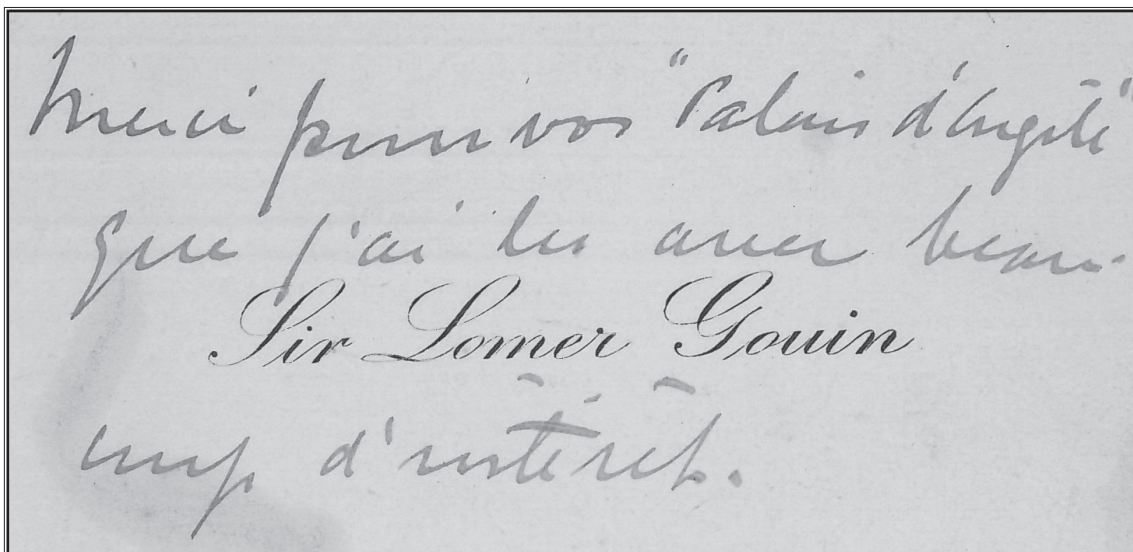 Merci pour vos "Palais d'argile"
que j'ai lus avec beau-
Sir Lomer Gouin
coup d'intérêt.